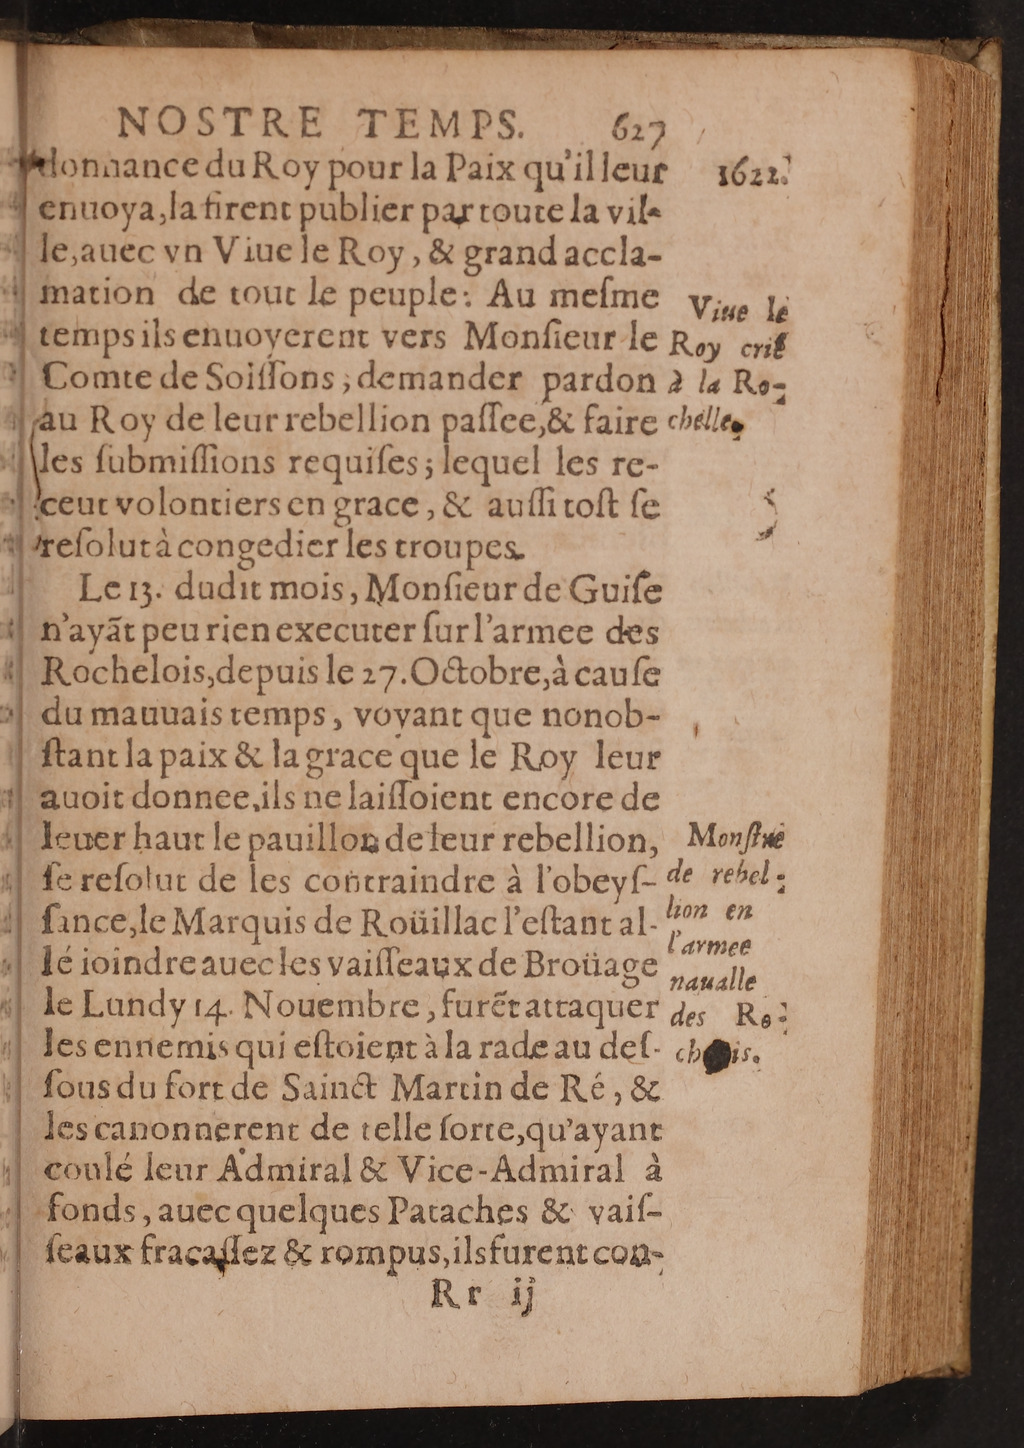 NOSTRE TEMPS. 627
donnance du Roy pour la Paix qu'il leur
1622.
enuoya, la firent publier par toute la vil-
le, auec vn Viue le Roy, & grand accla-
mation de tout le peuple: Au meſme
temps ils enuoyerent vers Monſieur le
Comte de Soiſſons; demander pardon
au Roy de leur rebellion paſſee, & faire
les ſubmiſſions requiſes; lequel les re-
ceut volontiers en grace, & auſſi toſt ſe
reſolut à congedier les troupes.
Viue le
Roy crié
à la Ro-
chelle.
Le 13. dudit mois, Monſieur de Guiſe
n'ayãt peu rien executer ſur l'armee des
Rochelois, depuis le 27. Octobre, à cauſe
du mauuais temps, voyant que nonob-
ſtant la paix & la grace que le Roy leur
auoit donnee, ils ne laiſſoient encore de
leuer haut le pauillon de leur rebellion,
ſe reſolut de les contraindre à l'obeyſ-
ſance, le Marquis de Roüillac l'eſtant al-
lé ioindre auec les vaiſſeaux de Broüage
le Lundy 14. Nouembre, furẽt attaquer
les ennemis qui eſtoient à la rade au deſ-
ſous du fort de Sainct Martin de Ré, &
les canonnerent de telle ſorte, qu'ayant
coulé leur Admiral & Vice-Admiral à
fonds, auec quelques Pataches & vaiſ-
ſeaux fracaſſez & rompus, ils furent con-
Monſtre
de rebel-
lion en
l'armee
naualle
des Ro-
chois.
Rr ij